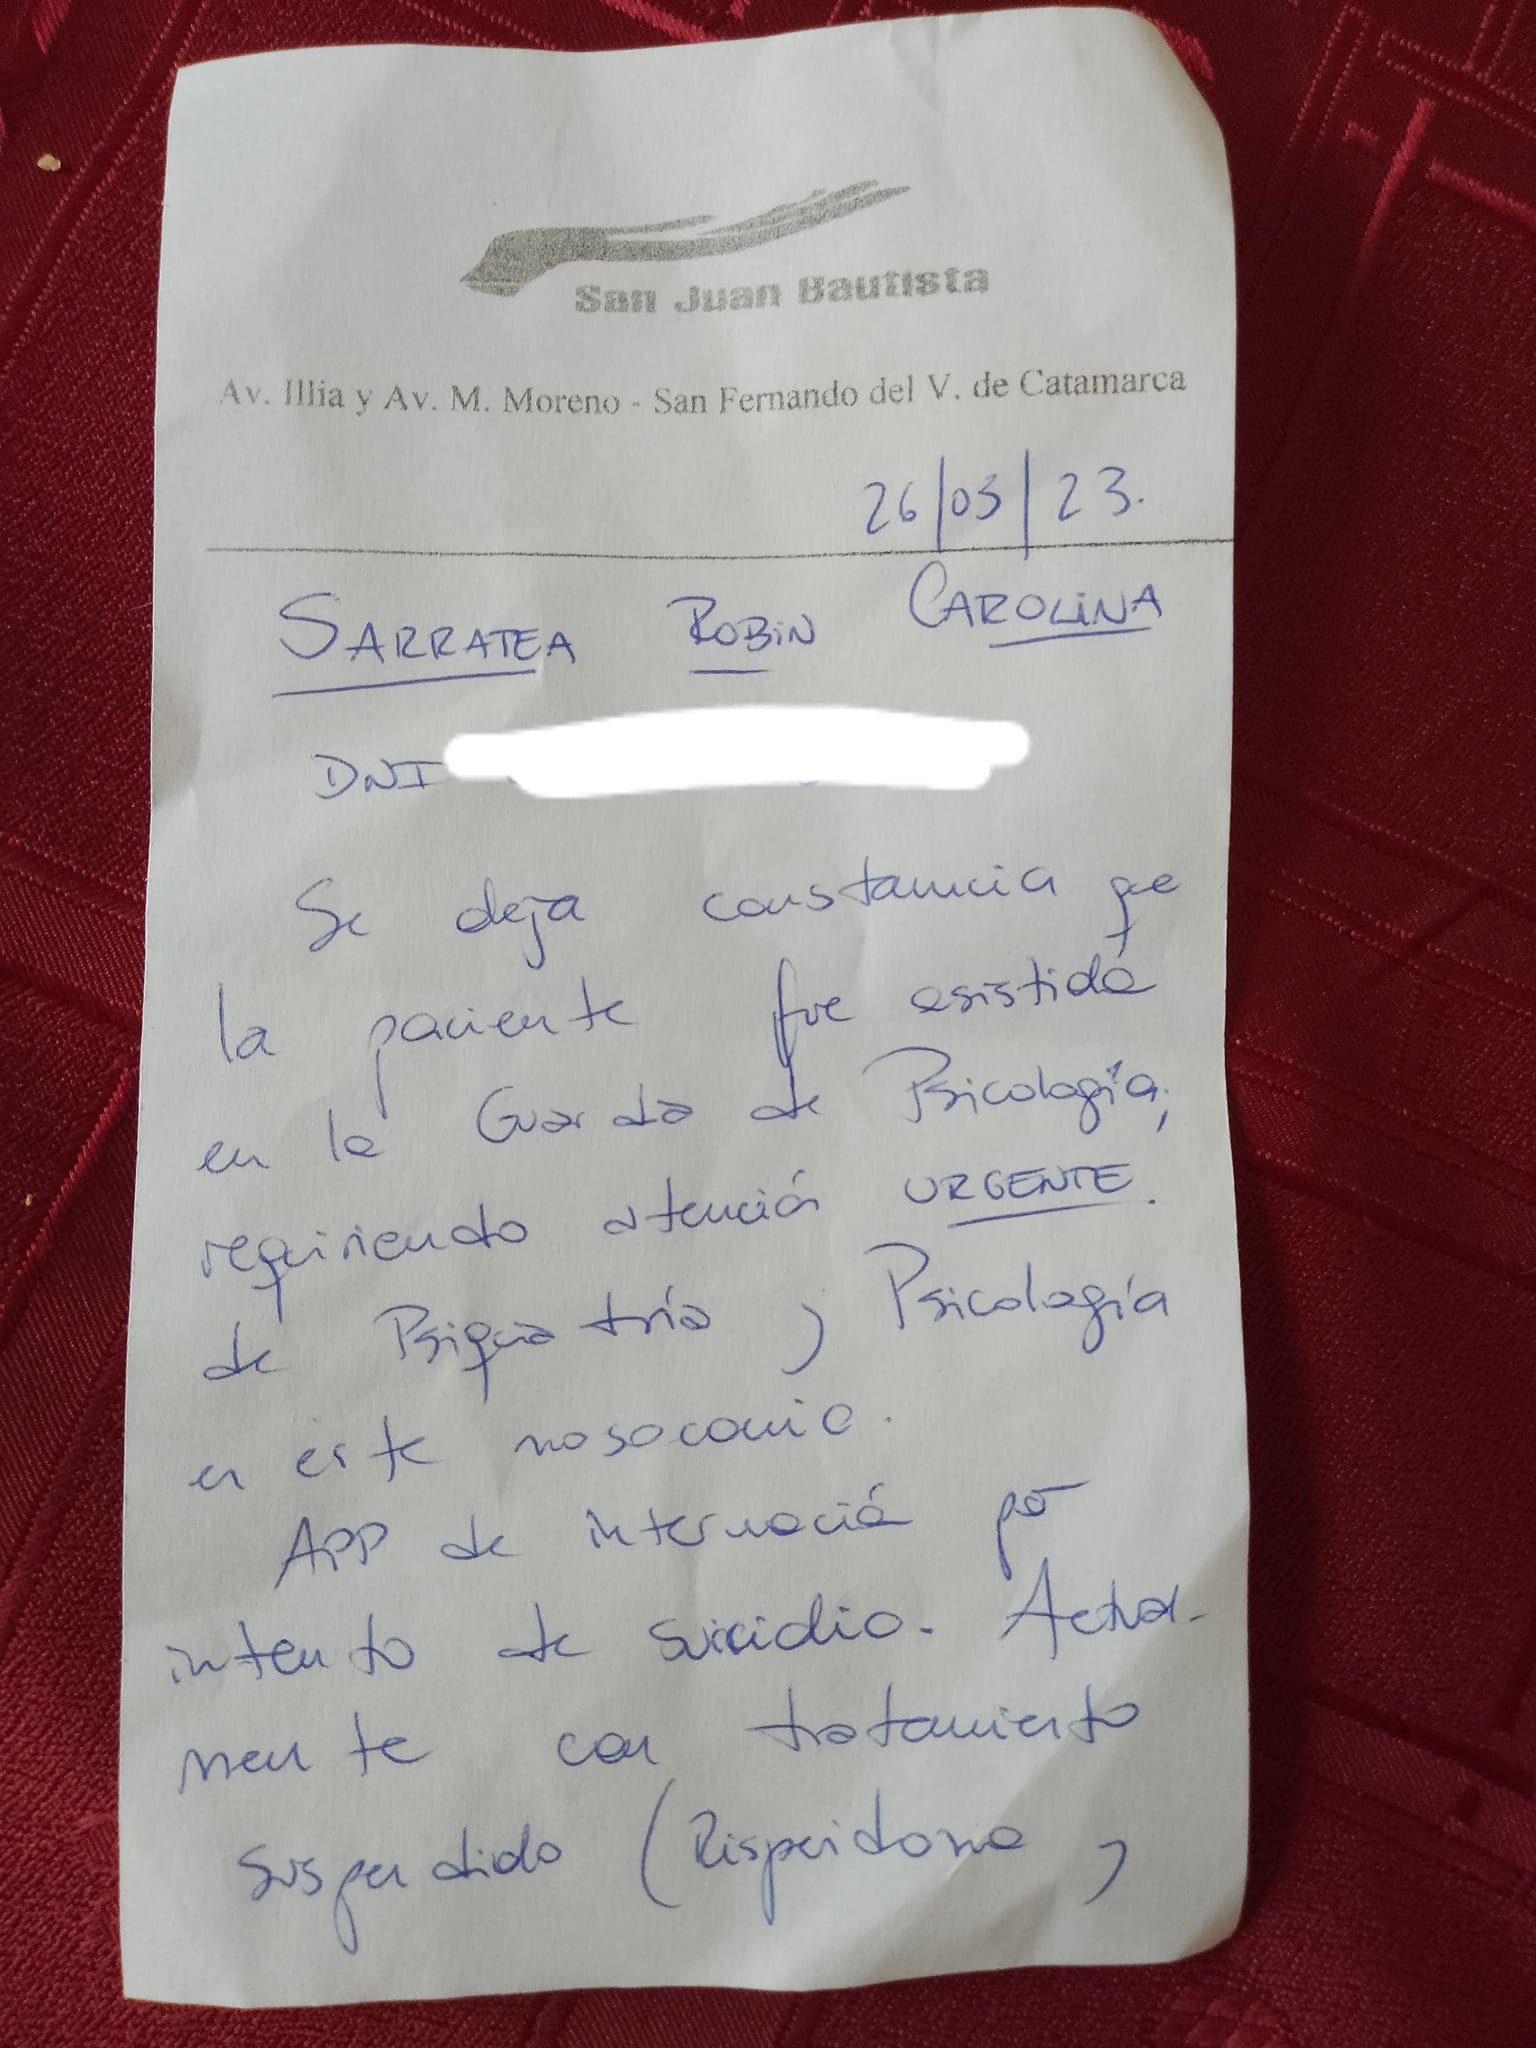 San Juan Bautista
Av. Illia y Av. M. Moreno - San Fernando del V. de Catamarca
26/05/23.
SARRATEA ROBIN CAROLINA
DNI
Se deja constancia que
la paciente fue asistida
en la Guardia de Psicología,
requiriendo atención URGENTE.
de Psiquiatría y Psicología
en este nosocomio.
APP de internació por
intento de suicidio. Actual-
mente con tratamiento
suspendido (Risperidona y